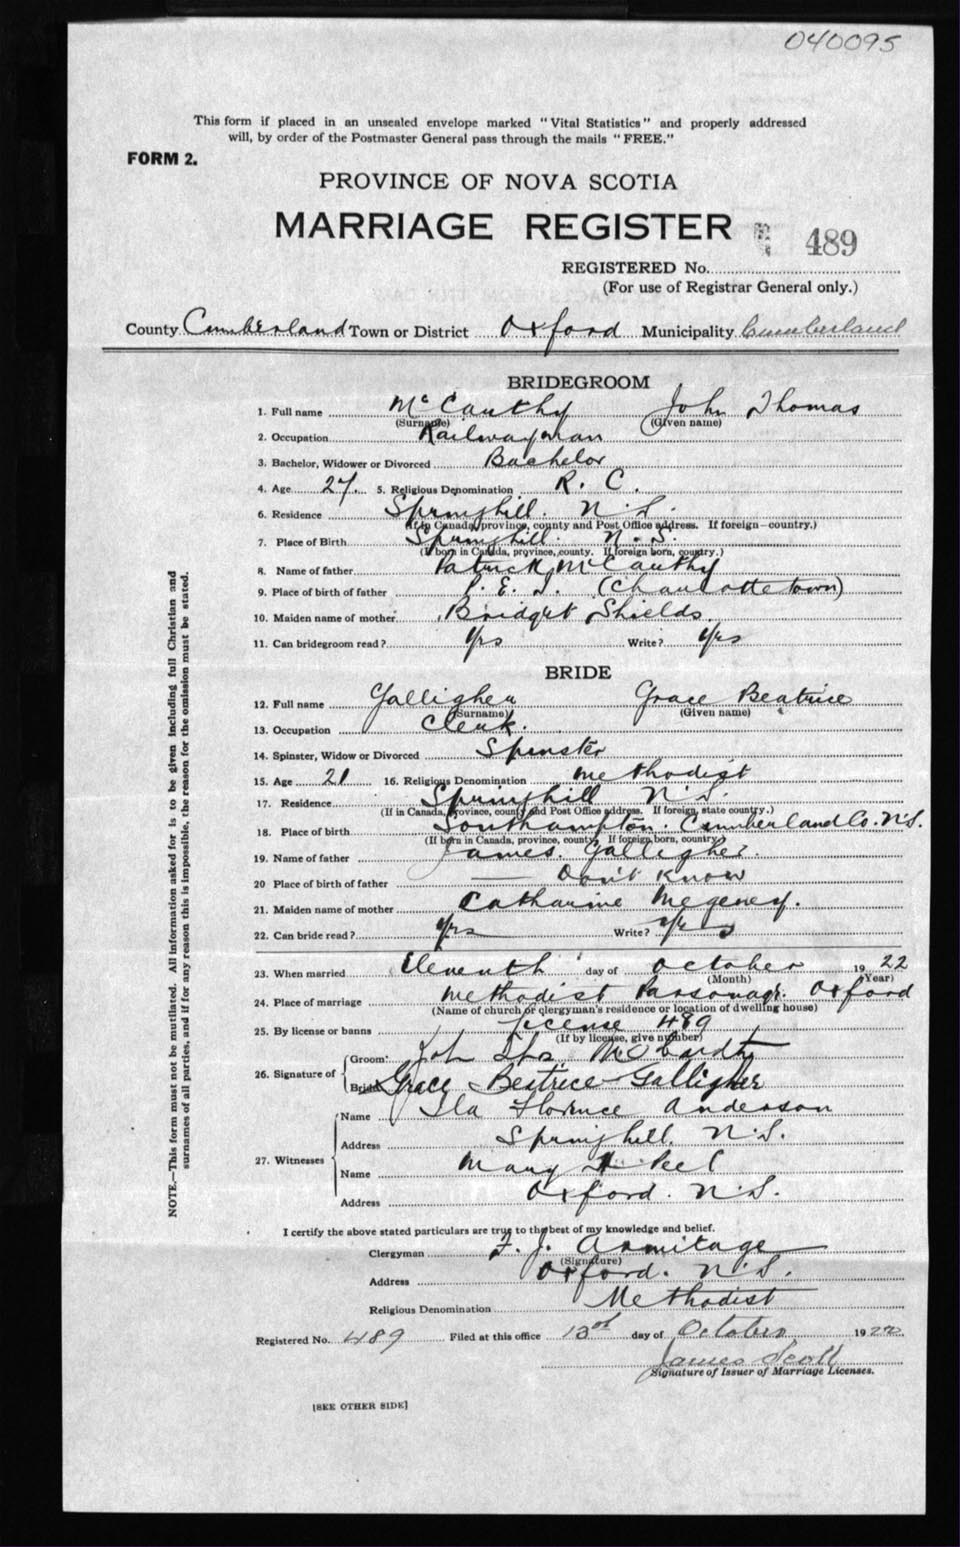 040095
This form if placed in an unsealed envelope marked "Vital Statistics" and properly addressed
will, by order of the Postmaster General pass through the mails "FREE."
FORM 2.
PROVINCE OF NOVA SCOTIA
MARRIAGE REGISTER
489
REGISTERED No.
(For use of Registrar General only.)
County Cumberland Town or District Oxford Municipality Cumberland
BRIDEGROOM
1. Full name McCarthy John Thomas
(Surname) (Given name)
2. Occupation Railwayman
3. Bachelor, Widower or Divorced Bachelor
4. Age 27 5. Religious Denomination R. C.
6. Residence Springhill N.S.
(If in Canada, province, county and Post Office address. If foreign—country.)
7. Place of Birth Springhill N.S.
(If born in Canada, province, county. If foreign born, country.)
8. Name of father Patrick McCarthy
9. Place of birth of father P. E. I. (Charlottetown)
10. Maiden name of mother Bridget Shields
11. Can bridegroom read? Yes Write? Yes
BRIDE
12. Full name Galligher Grace Beatrice
(Surname) (Given name)
13. Occupation Clerk.
14. Spinster, Widow or Divorced Spinster
15. Age 21 16. Religious Denomination Methodist
17. Residence Springhill N.S.
(If in Canada, province, county and Post Office address. If foreign, state country.)
18. Place of birth Southampton, Cumberland Co. N.S.
(If born in Canada, province, county. If foreign born, country.)
19. Name of father James Galligher.
20 Place of birth of father — Don't Know
21. Maiden name of mother Catharine Megeney.
22. Can bride read? Yes Write? Yes
23. When married Eleventh day of October 1922
(Month) (Year)
24. Place of marriage Methodist Parsonage. Oxford
(Name of church or clergyman's residence or location of dwelling house)
25. By license or banns License 489
(If by license, give number)
26. Signature of
Groom: John Thos McCardthy
Bride: Grace Beatrice Galligher
27. Witnesses
Name Ila Florence Anderson
Address Springhill, N.S.
Name Mary Peel
Address Oxford. N.S.
I certify the above stated particulars are true to the best of my knowledge and belief.
Clergyman F. J. Armitage
(Signature)
Address Oxford. N.S.
Religious Denomination Methodist
Registered No. 489 Filed at this office 13th day of October 1922
James Scott
Signature of Issuer of Marriage Licenses.
[SEE OTHER SIDE]
NOTE.—This form must not be mutilated. All information asked for is to be given including full Christian and
surnames of all parties, and if for any reason this is impossible, the reason for the omission must be stated.